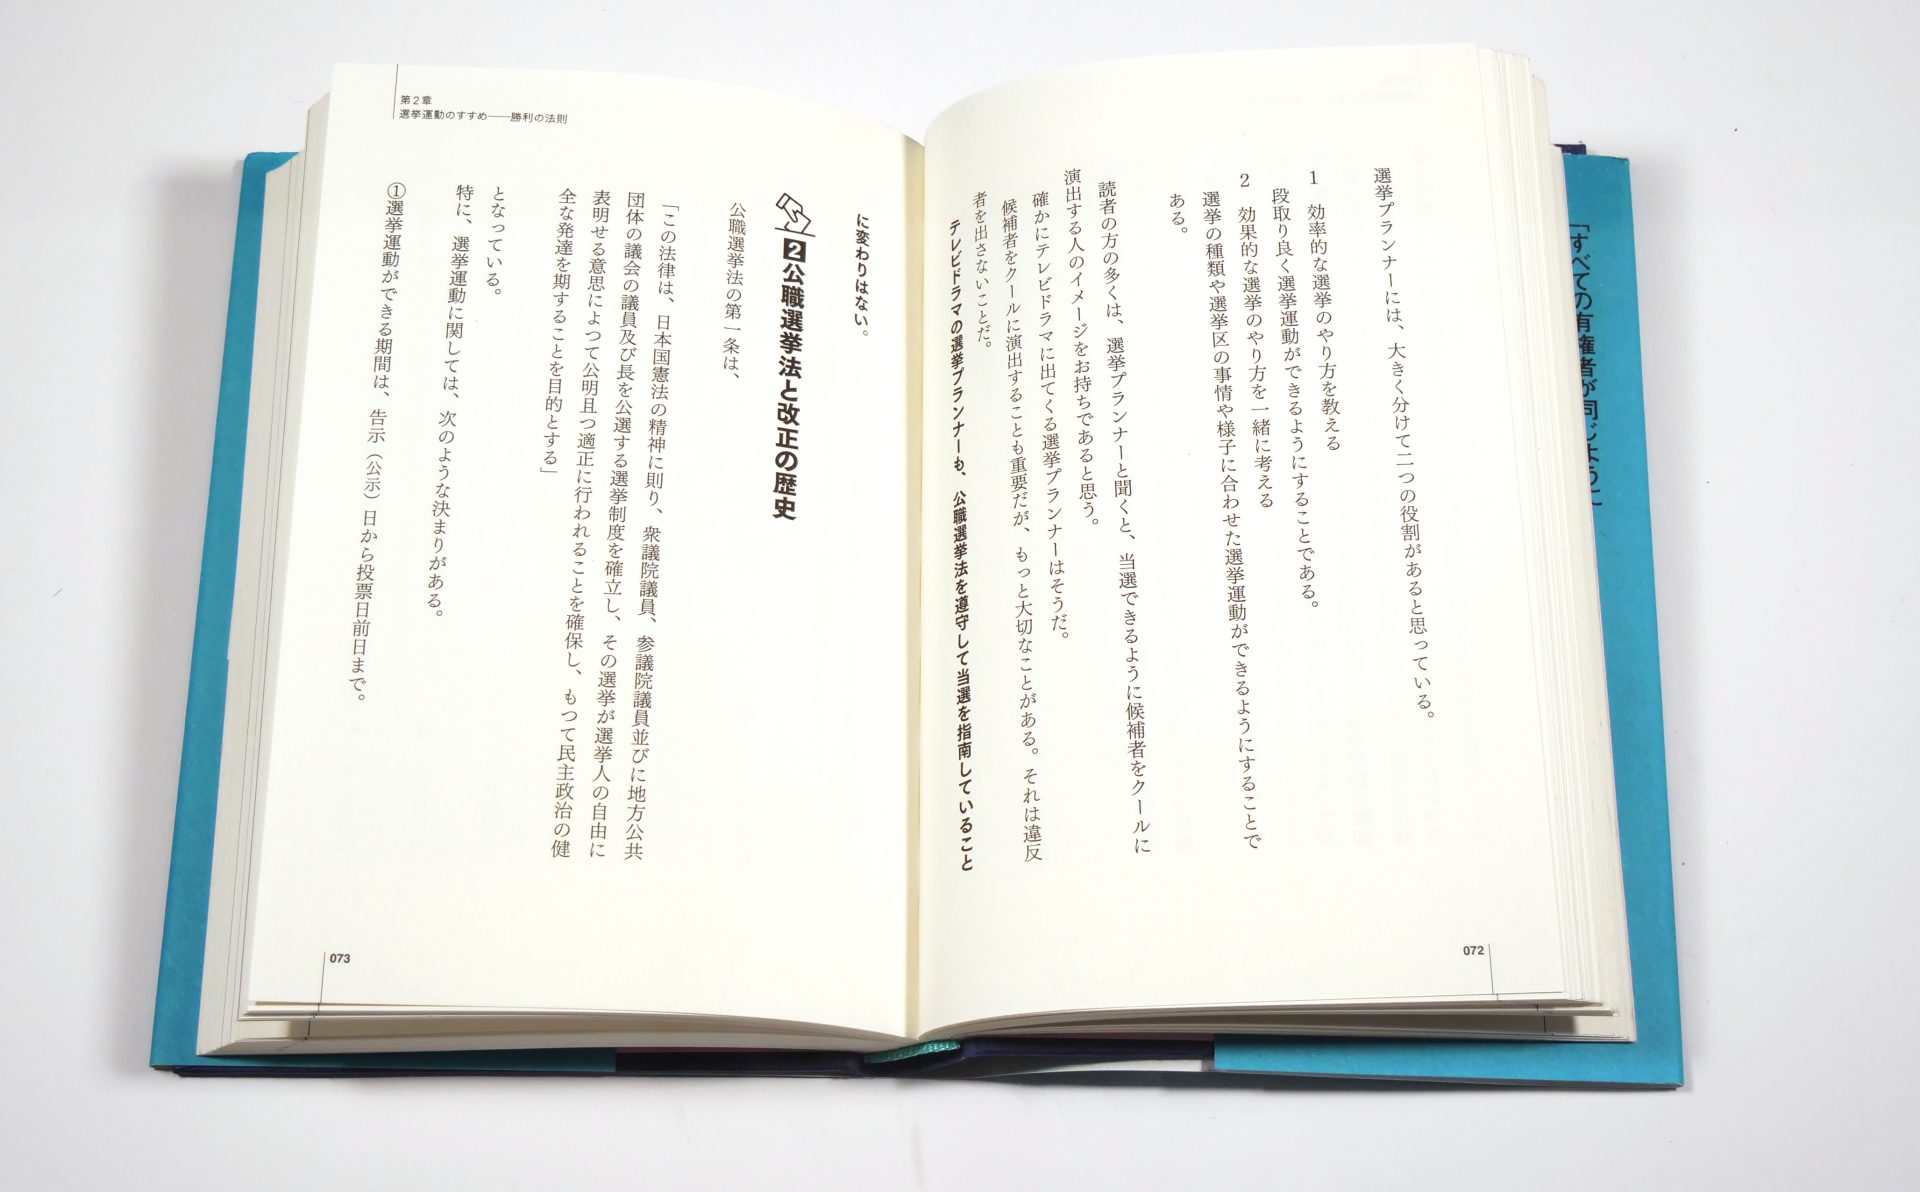 選挙プランナーには、大きく分けて二つの役割があると思っている。
1　効率的な選挙のやり方を教える
段取り良く選挙運動ができるようにすることである。
2　効果的な選挙のやり方を一緒に考える
選挙の種類や選挙区の事情や様子に合わせた選挙運動ができるようにすることで
ある。
読者の方の多くは、選挙プランナーと聞くと、当選できるように候補者をクールに
演出する人のイメージをお持ちであると思う。
確かにテレビドラマに出てくる選挙プランナーはそうだ。
候補者をクールに演出することも重要だが、もっと大切なことがある。それは違反
者を出さないことだ。
テレビドラマの選挙プランナーも、公職選挙法を遵守して当選を指南していること
072
第2章
選挙運動のすすめ――勝利の法則
に変わりはない。
2 公職選挙法と改正の歴史
公職選挙法の第一条は、
「この法律は、日本国憲法の精神に則り、衆議院議員、参議院議員並びに地方公共
団体の議会の議員及び長を公選する選挙制度を確立し、その選挙が選挙人の自由に
表明せる意思によつて公明且つ適正に行われることを確保し、もつて民主政治の健
全な発達を期することを目的とする」
となっている。
特に、選挙運動に関しては、次のような決まりがある。
①選挙運動ができる期間は、告示（公示）日から投票日前日まで。
073
「すべての有権者が同じように